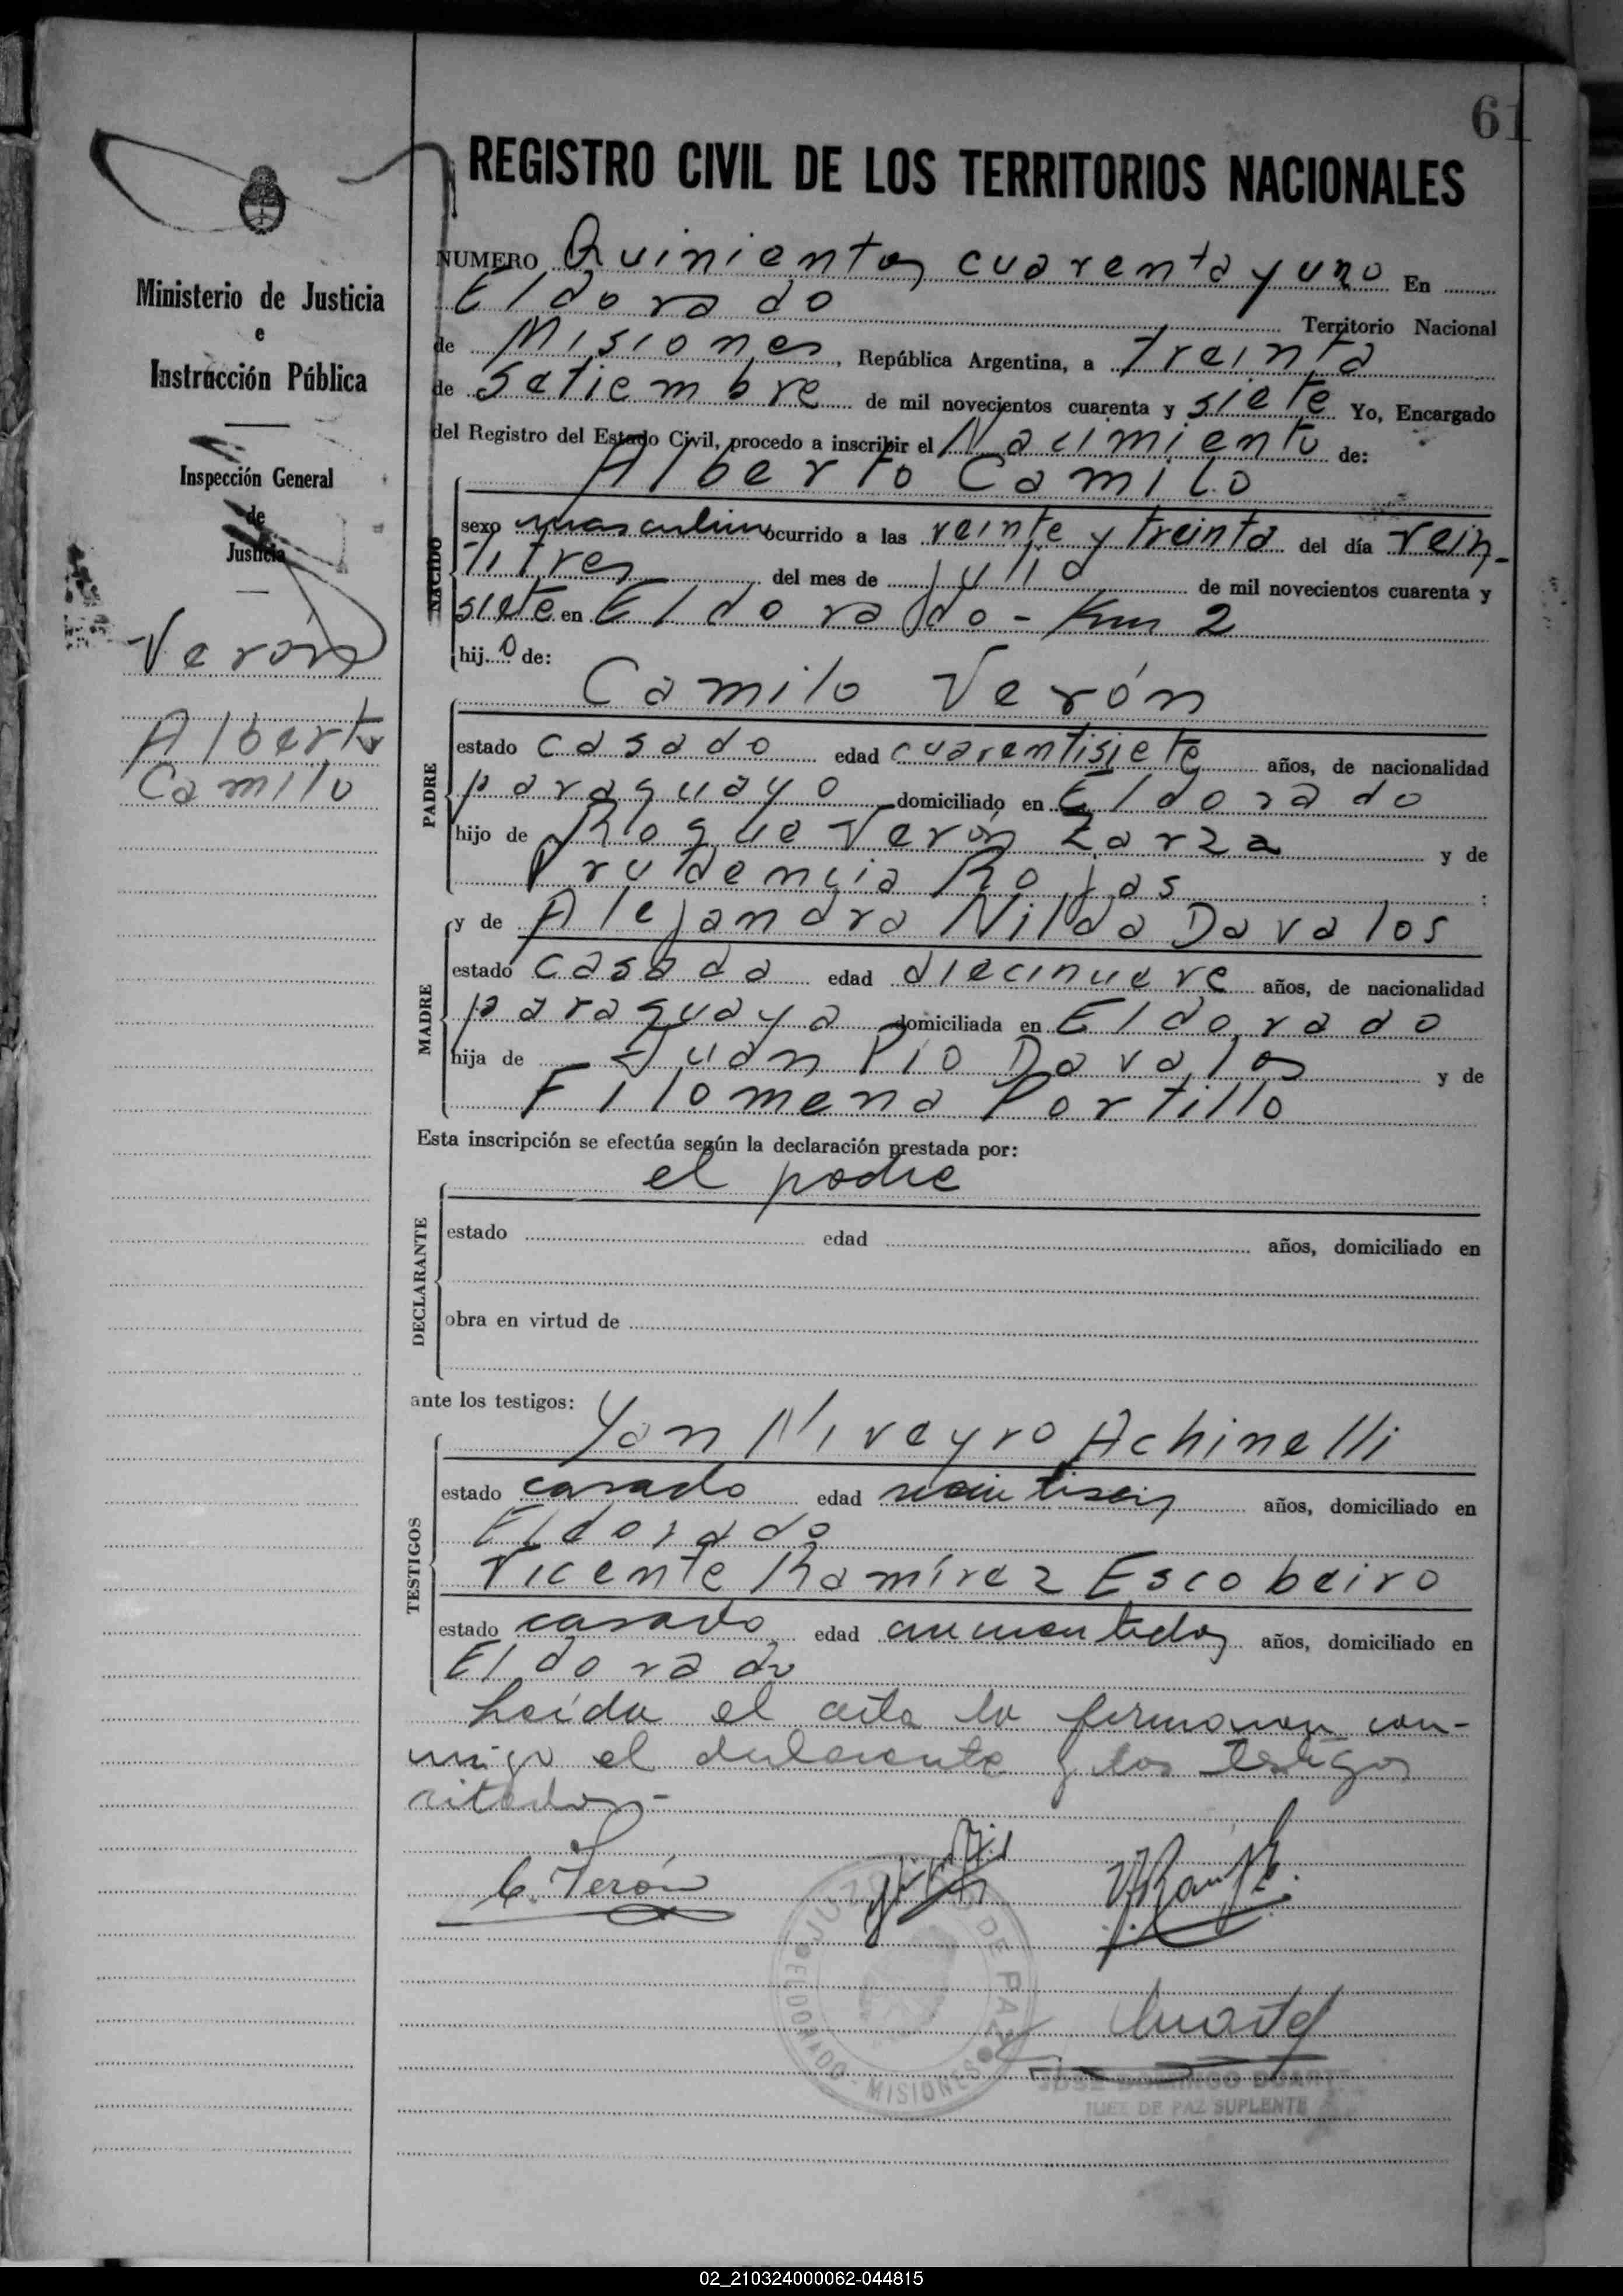 61
REGISTRO CIVIL DE LOS TERRITORIOS NACIONALES
Ministerio de Justicia
e
Instrucción Pública
Inspección General
de
Justicia
Verón
Alberto
Camilo
NUMERO Quinientos cuarenta y uno En
Eldorado Territorio Nacional
de Misiones, República Argentina, a Treinta
de Setiembre de mil novecientos cuarenta y siete Yo, Encargado
del Registro del Estado Civil, procedo a inscribir el Nacimiento de:
Alberto Camilo
NACIDO
sexo masculino ocurrido a las veinte y treinta del día vein-
titres del mes de Julio de mil novecientos cuarenta y
siete en Eldorado - Km 2
hijo de:
Camilo Verón
PADRE
estado casado edad cuarentisiete años, de nacionalidad
paraguayo domiciliado en Eldorado
hijo de Roque Verón Zarza y de
Prudencia Rojas :
MADRE
y de Alejandra Nilda Davalos
estado casada edad diecinueve años, de nacionalidad
paraguaya domiciliada en Eldorado
hija de Juan Pio Davalos y de
Filomena Portillo
Esta inscripción se efectúa según la declaración prestada por:
el padre
DECLARANTE
estado edad años, domiciliado en
obra en virtud de
ante los testigos:
Yon Niveyro Achinelli
TESTIGOS
estado casado edad veintiseis años, domiciliado en
Eldorado
Vicente Ramírez Escobeiro
estado casado edad cuarentidos años, domiciliado en
Eldorado
Leída el acta la firmaron con-
migo el declarante y los testigos
citados.-
C. Verón
JUZGADO DE PAZ
ELDORADO - MISIONES
JOSE DOMINGO DUARTE
JUEZ DE PAZ SUPLENTE
02_210324000062-044815